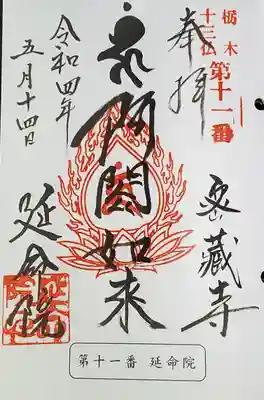 栃木
十三仏
第十一番
奉拝
密藏寺
阿閦如来
令和四年
五月十四日
延命院
第十一番 延命院